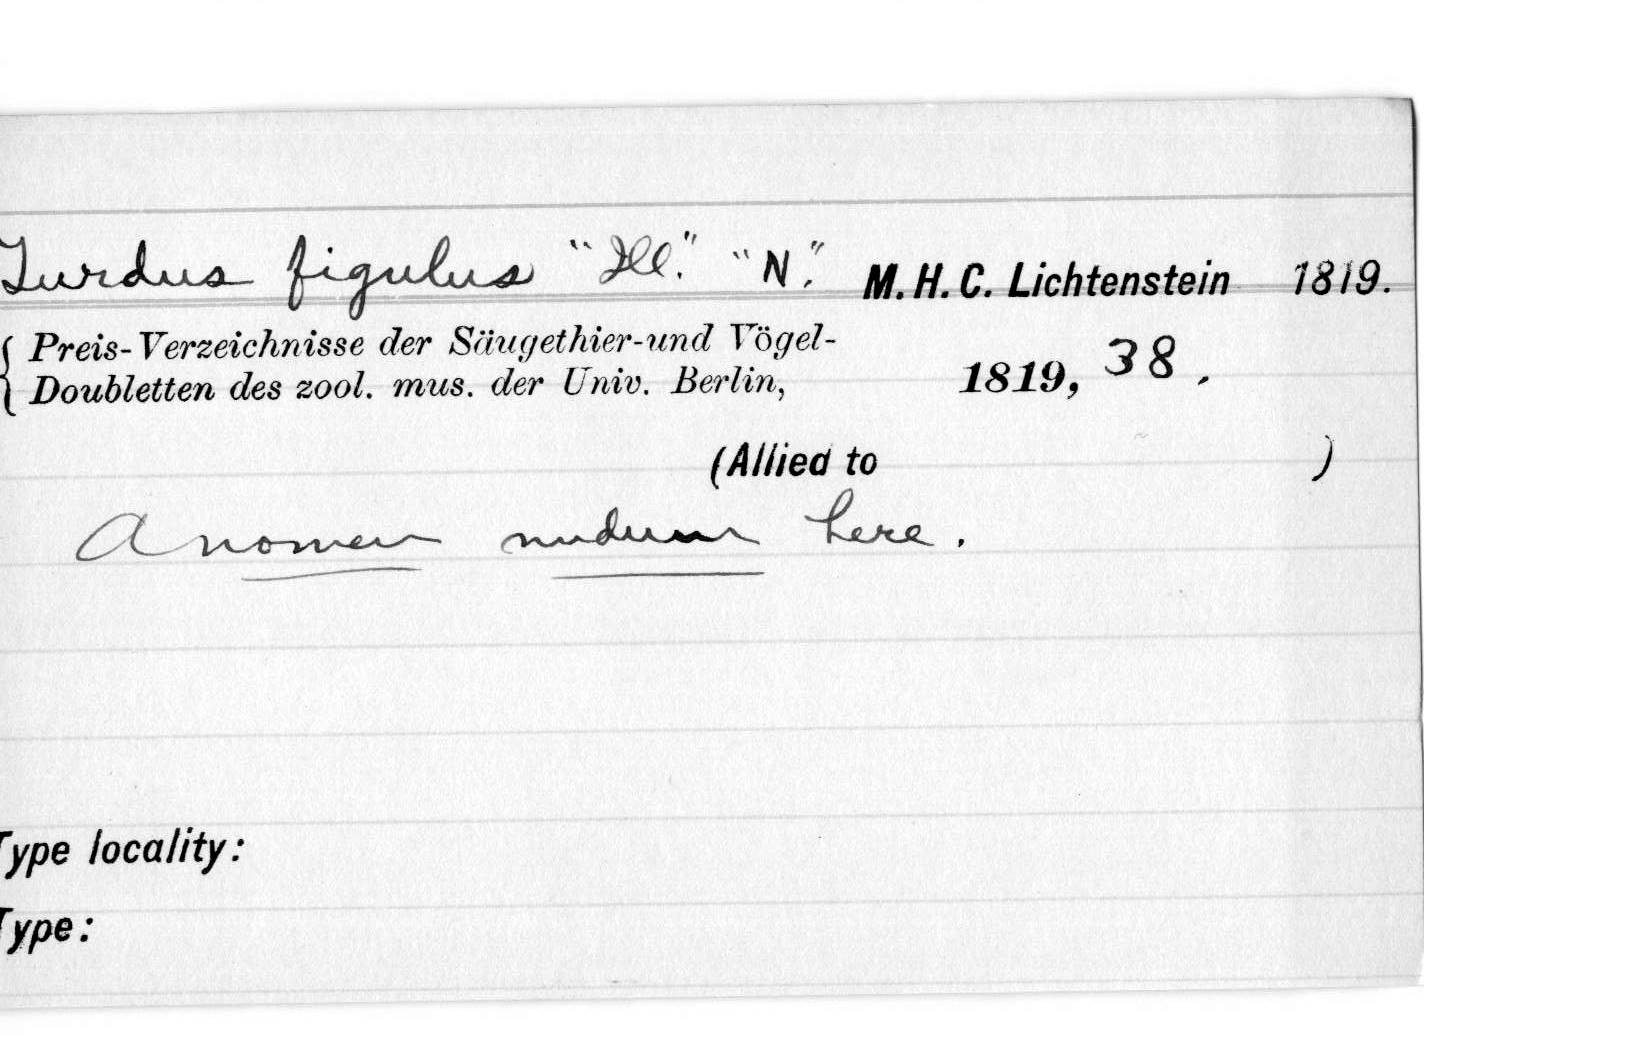 Turdus figulus "Ill." "N." M. H. C. Lichtenstein 1819.
Preis-Verzeichnisse der Säugethier-und Vögel-
Doubletten des zool. mus. der Univ. Berlin, 1819, 38.
(Allied to )
A nomen nudum here.
Type locality:
Type: